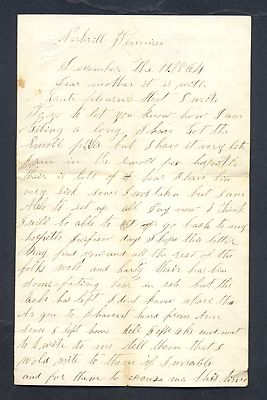 Nashvill Tennisee
December the 14 / 1864
Dear mother it is with
grate pleasure that I write
to let you know how I am
giting a long I have Got the
Smoll pox but I have it very lite
I am in the Smoll pox hospittle
thair is lots of hear I have bin
very sick since I was taken but I am
Able to set up all Day now I think
I will be able to go back to my
hospittle in few days I hope this letter
may find you and all the rest of the
folks well and harty thair has ben
some fiting hear in
rebs has left I dont know whare tha
As you to heard from
since I left home
to write to me tell them that I
wold write to them if I
and for them to excuse me this time